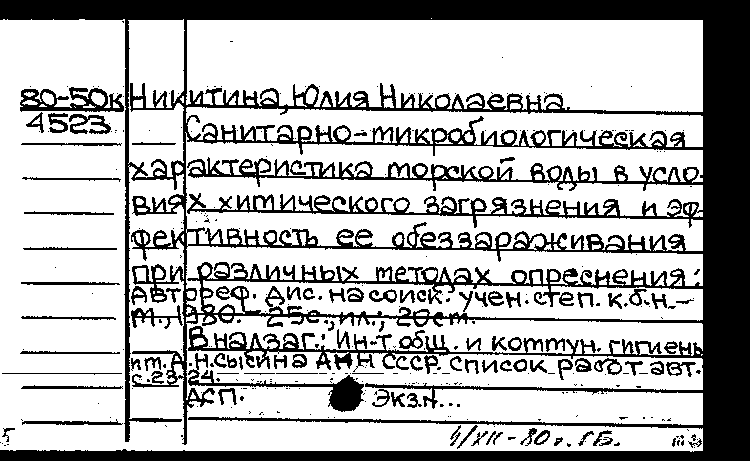 80-50к Никитина, Юлия Николаевна.
4523
Санитарно-микробиологическая
характеристика морской воды в усло-
виях химического загрязнения и эф-
фективность ее обеззараживания
при различных методах опреснения:
Автореф. дис. на соиск. учен. степ. к.б.н.-
М., 1980. - 25с., ил.; 20см.
В надзаг.: Ин-т общ. и коммун. гигиены
им. А.Н. Сысина АМН СССР. Список работ авт.:
с. 23-24.
ДСП. Экз.N...
4/XII-80г. ГБ.